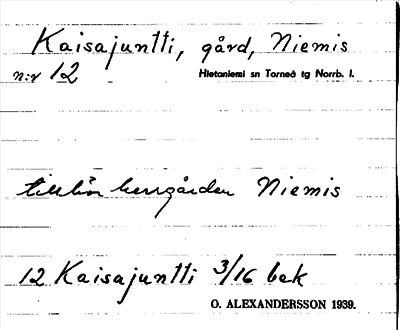 Kaisajuntti, gård, Niemis
n:r 12 Hietaniemi sn Torneå tg Norrb. l.
tillhör herrgården Niemis
12 Kaisajuntti 3/16 bek
O. ALEXANDERSSON 1939.